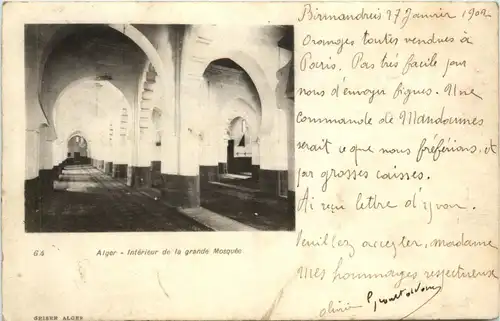 Birmandreis 27 Janvier 1902
Oranges toutes vendues à
Paris. Pas très facile pour
nous d'envoyer figues. Une
Commande de Mandarines
serait ce que nous préférions, et
par grosses caisses.
Ai reçu lettre d'Yvon.
Veuillez accepter, madame
Mes hommages respectueux
64 Alger - Intérieur de la grande Mosquée
GEISER ALGER